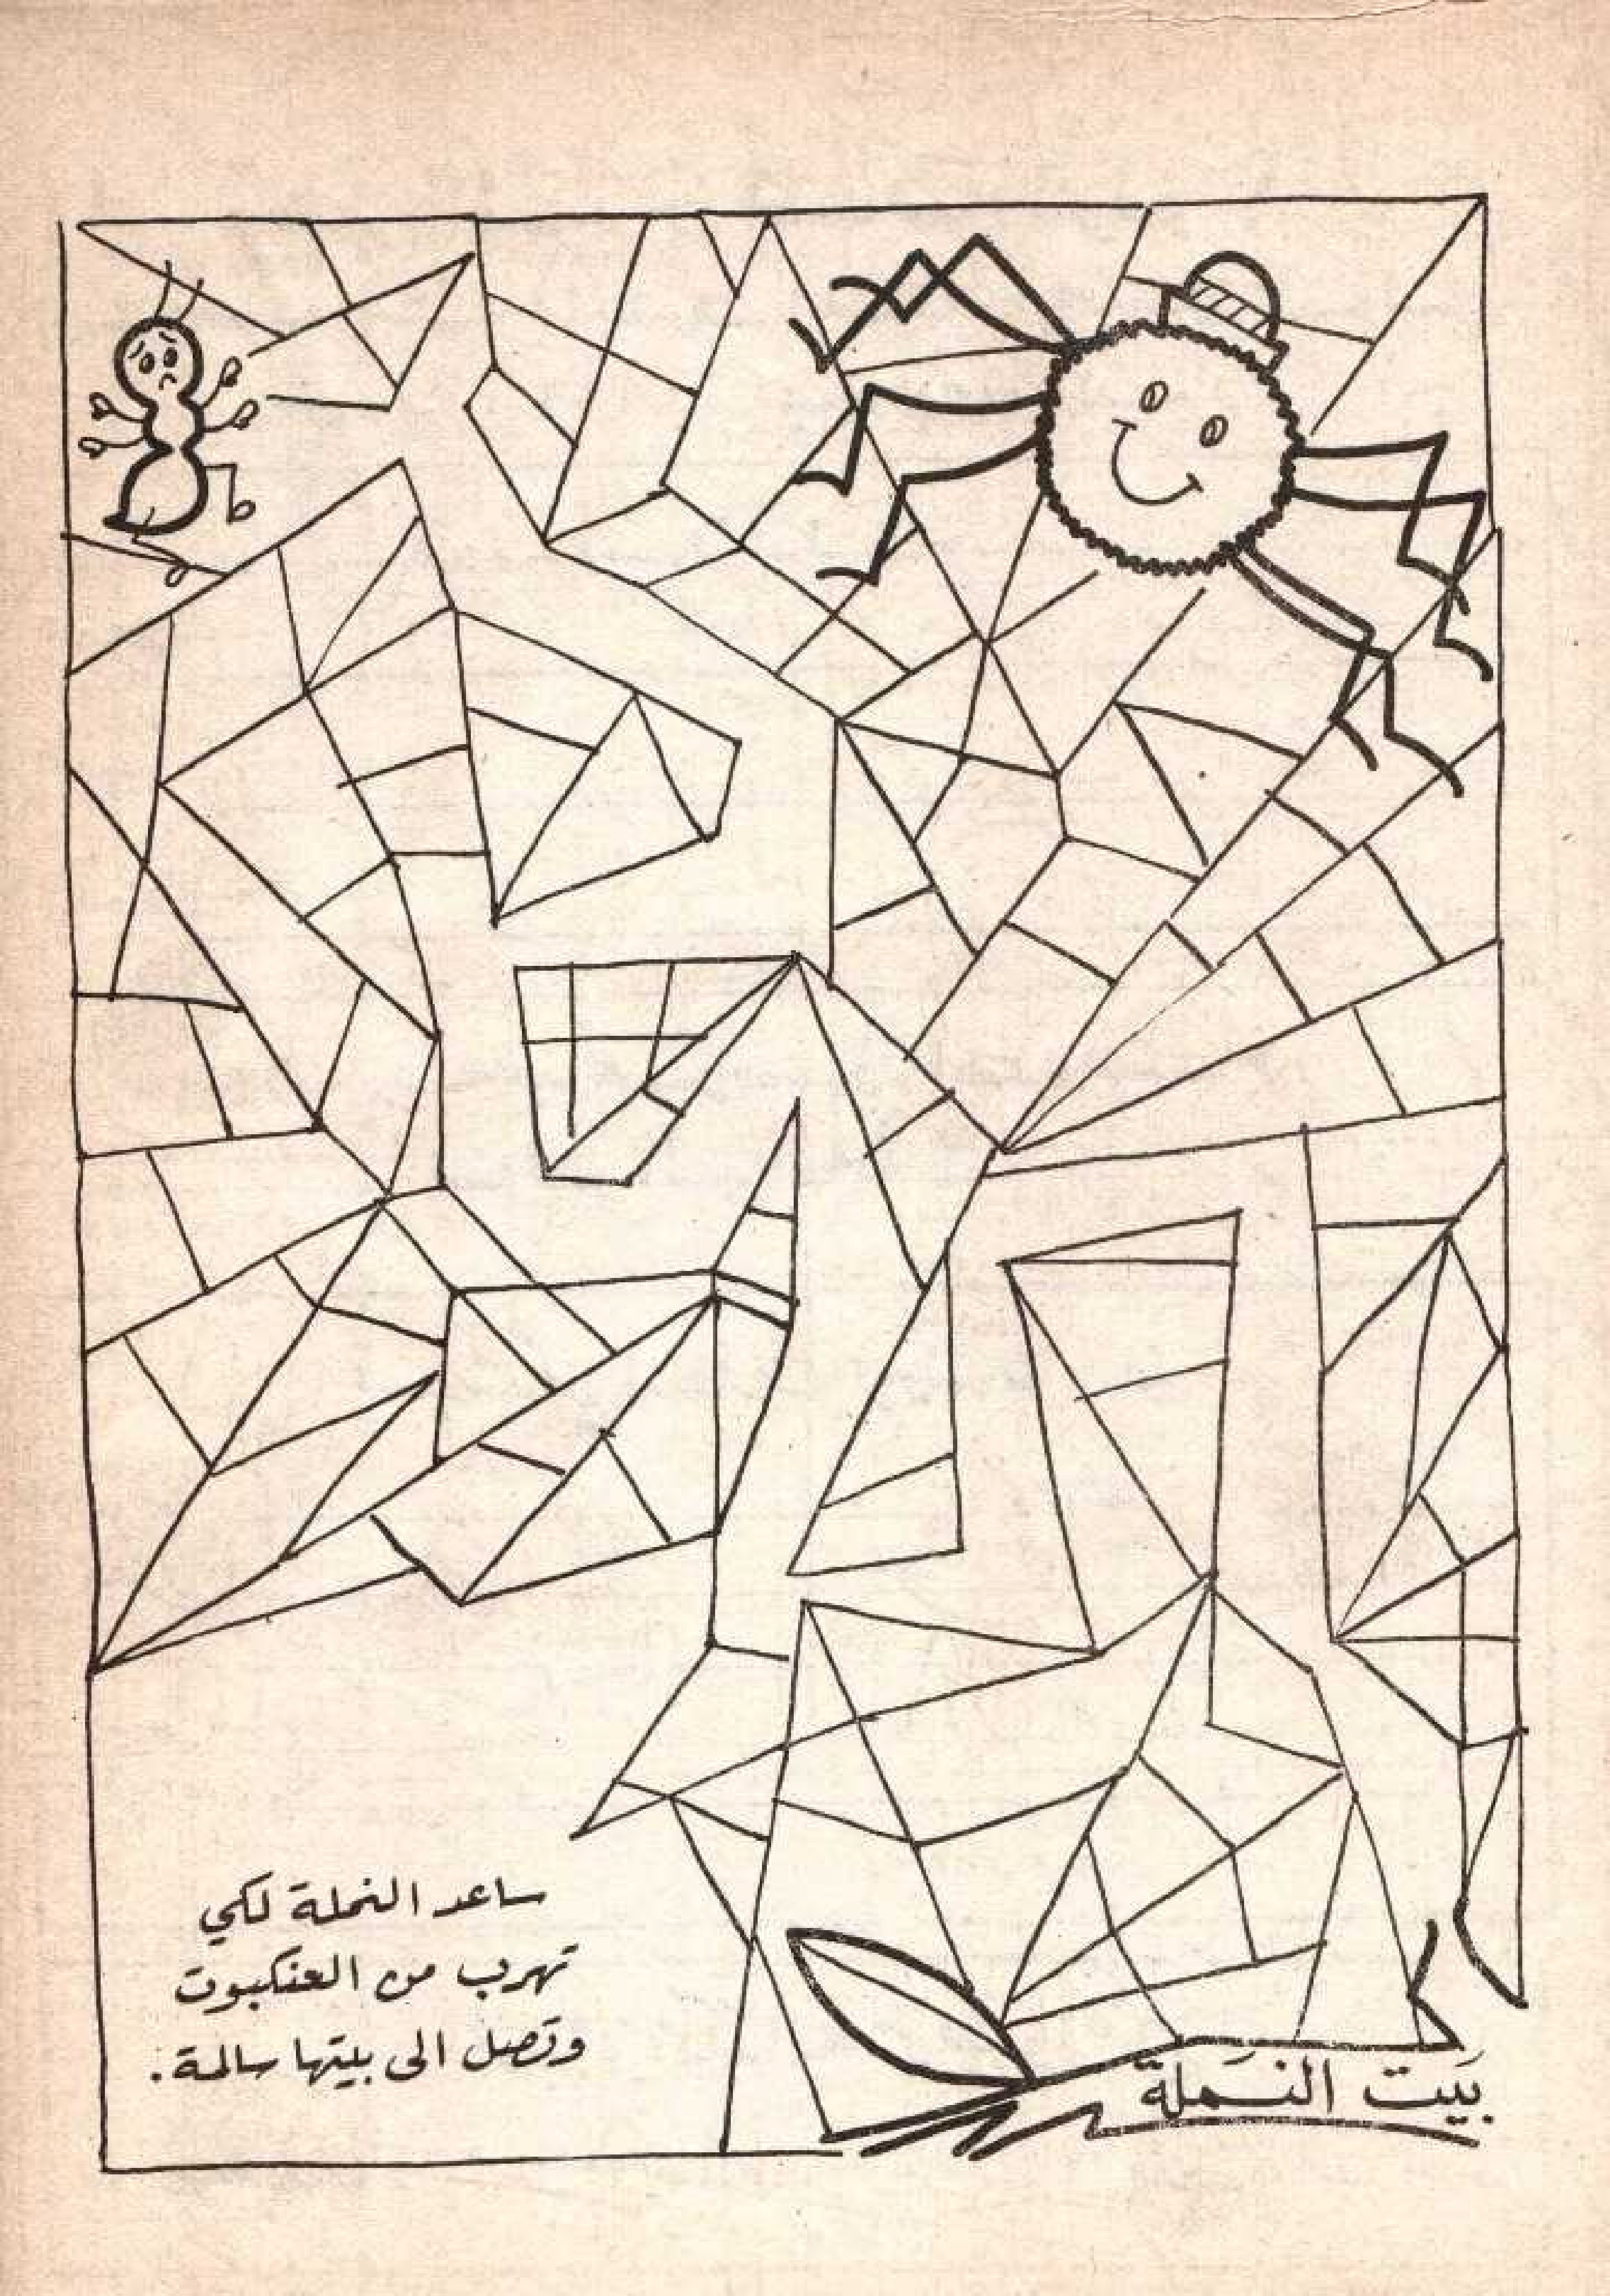 ساعد النملة لكي
تهرب من العنكبوت
وتصل الى بيتها سالمة.
بَيت النَملة